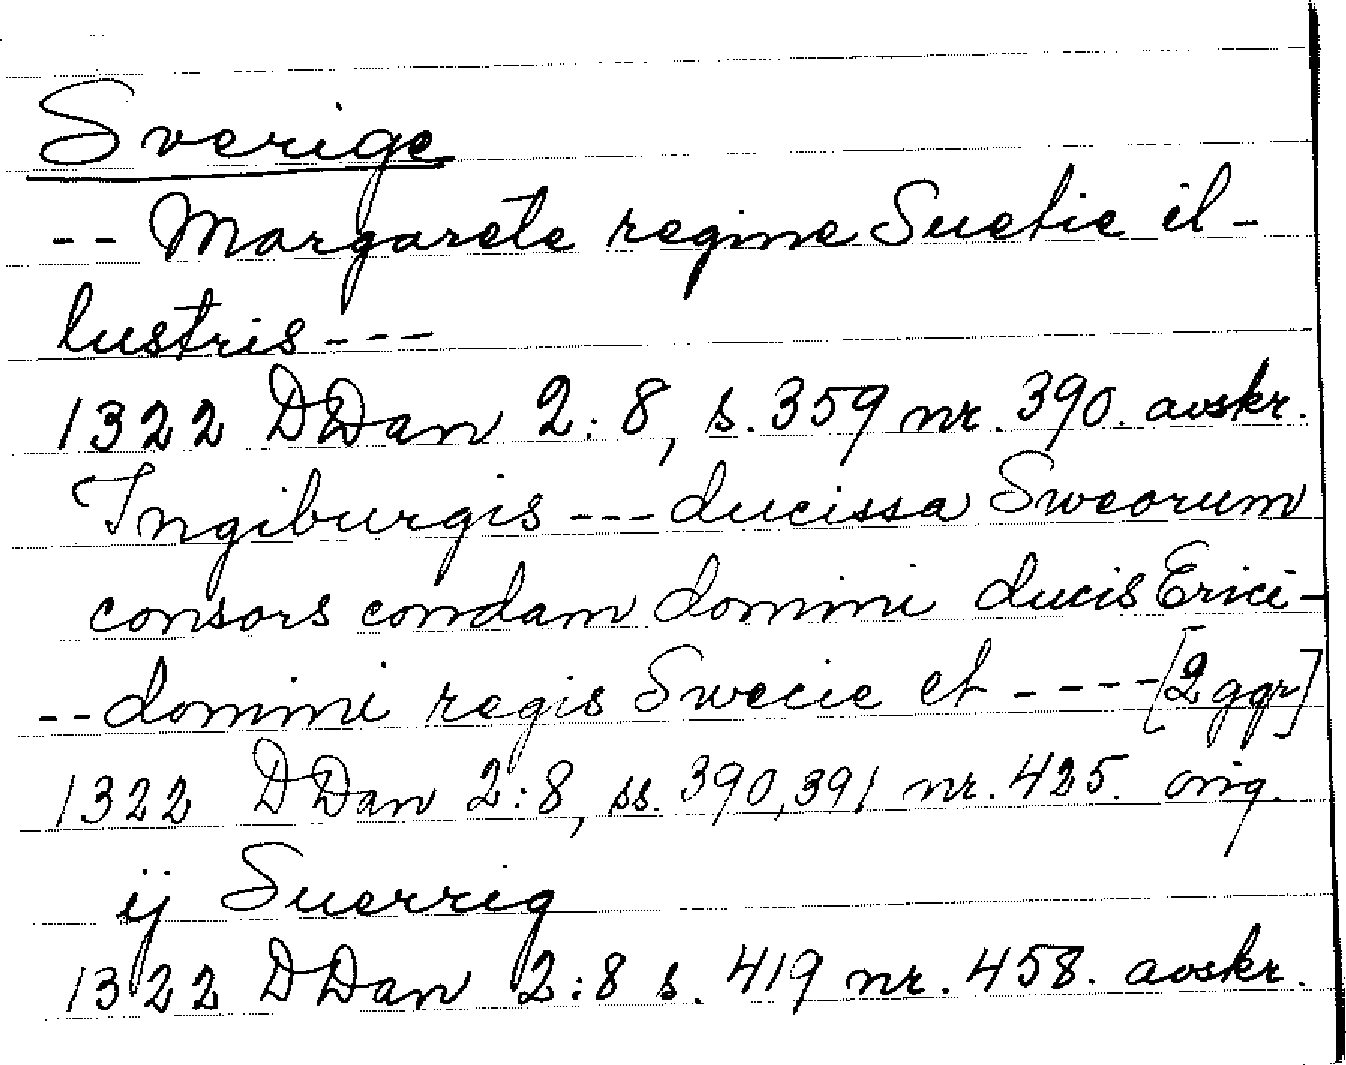 Sverige
-- Margarete regine Suetie il-
lustris---
1322 DDan 2:8, s. 359 nr. 390. avskr.
Ingiburgis --- ducissa Sweorum
consors condam domini ducis Erici-
-- domini regis Swecie et ---- [2 ggr]
1322 DDan 2:8, ss. 390, 391 nr. 425. orig.
ij Suerrig
1322 DDan 2:8 s. 419 nr. 458. avskr.